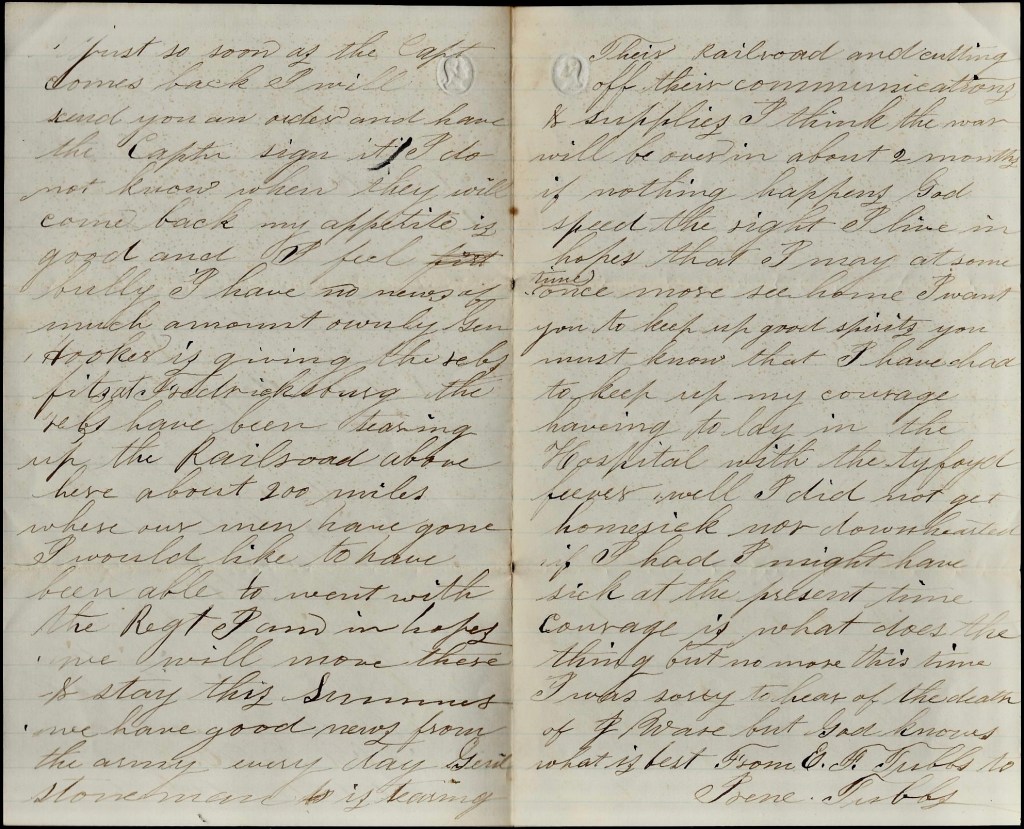 Just so soon as the Capt
comes back I will
send you an order and have
the Captn sign it I do
not know when they will
come back my appetite is
good and I feel first
bully I have no news of
much amount ownly Gen
Hooker is giving the rebs
fits at Fredricksburg the
rebs have been tearing
up the Railroad above
here about 200 miles
where our men have gone
I would like to have
been able to went with
the Regt I am in hopes
we will move there
& stay this Summer
we have good news from
the army every day Genl
stoneman is tearing
Their Railroad and cutting
off their communications
& supplies I think the war
will be over in about 2 months
if nothing happens God
speed the right I live in
hopes that I may at some
time
once more see home I want
you to keep up good spirits you
must know that I have had
to keep up my courage
haveing to lay in the
Hospital with the tyfoyd
feever well I did not get
homesick nor downhearted
if I had I might have
sick at the present time
Courage is what does the
thing but no more this time
I was sorry to hear of the death
of Ware but God knows
what is best From E. F. Tubbs to
Irene Tubbs